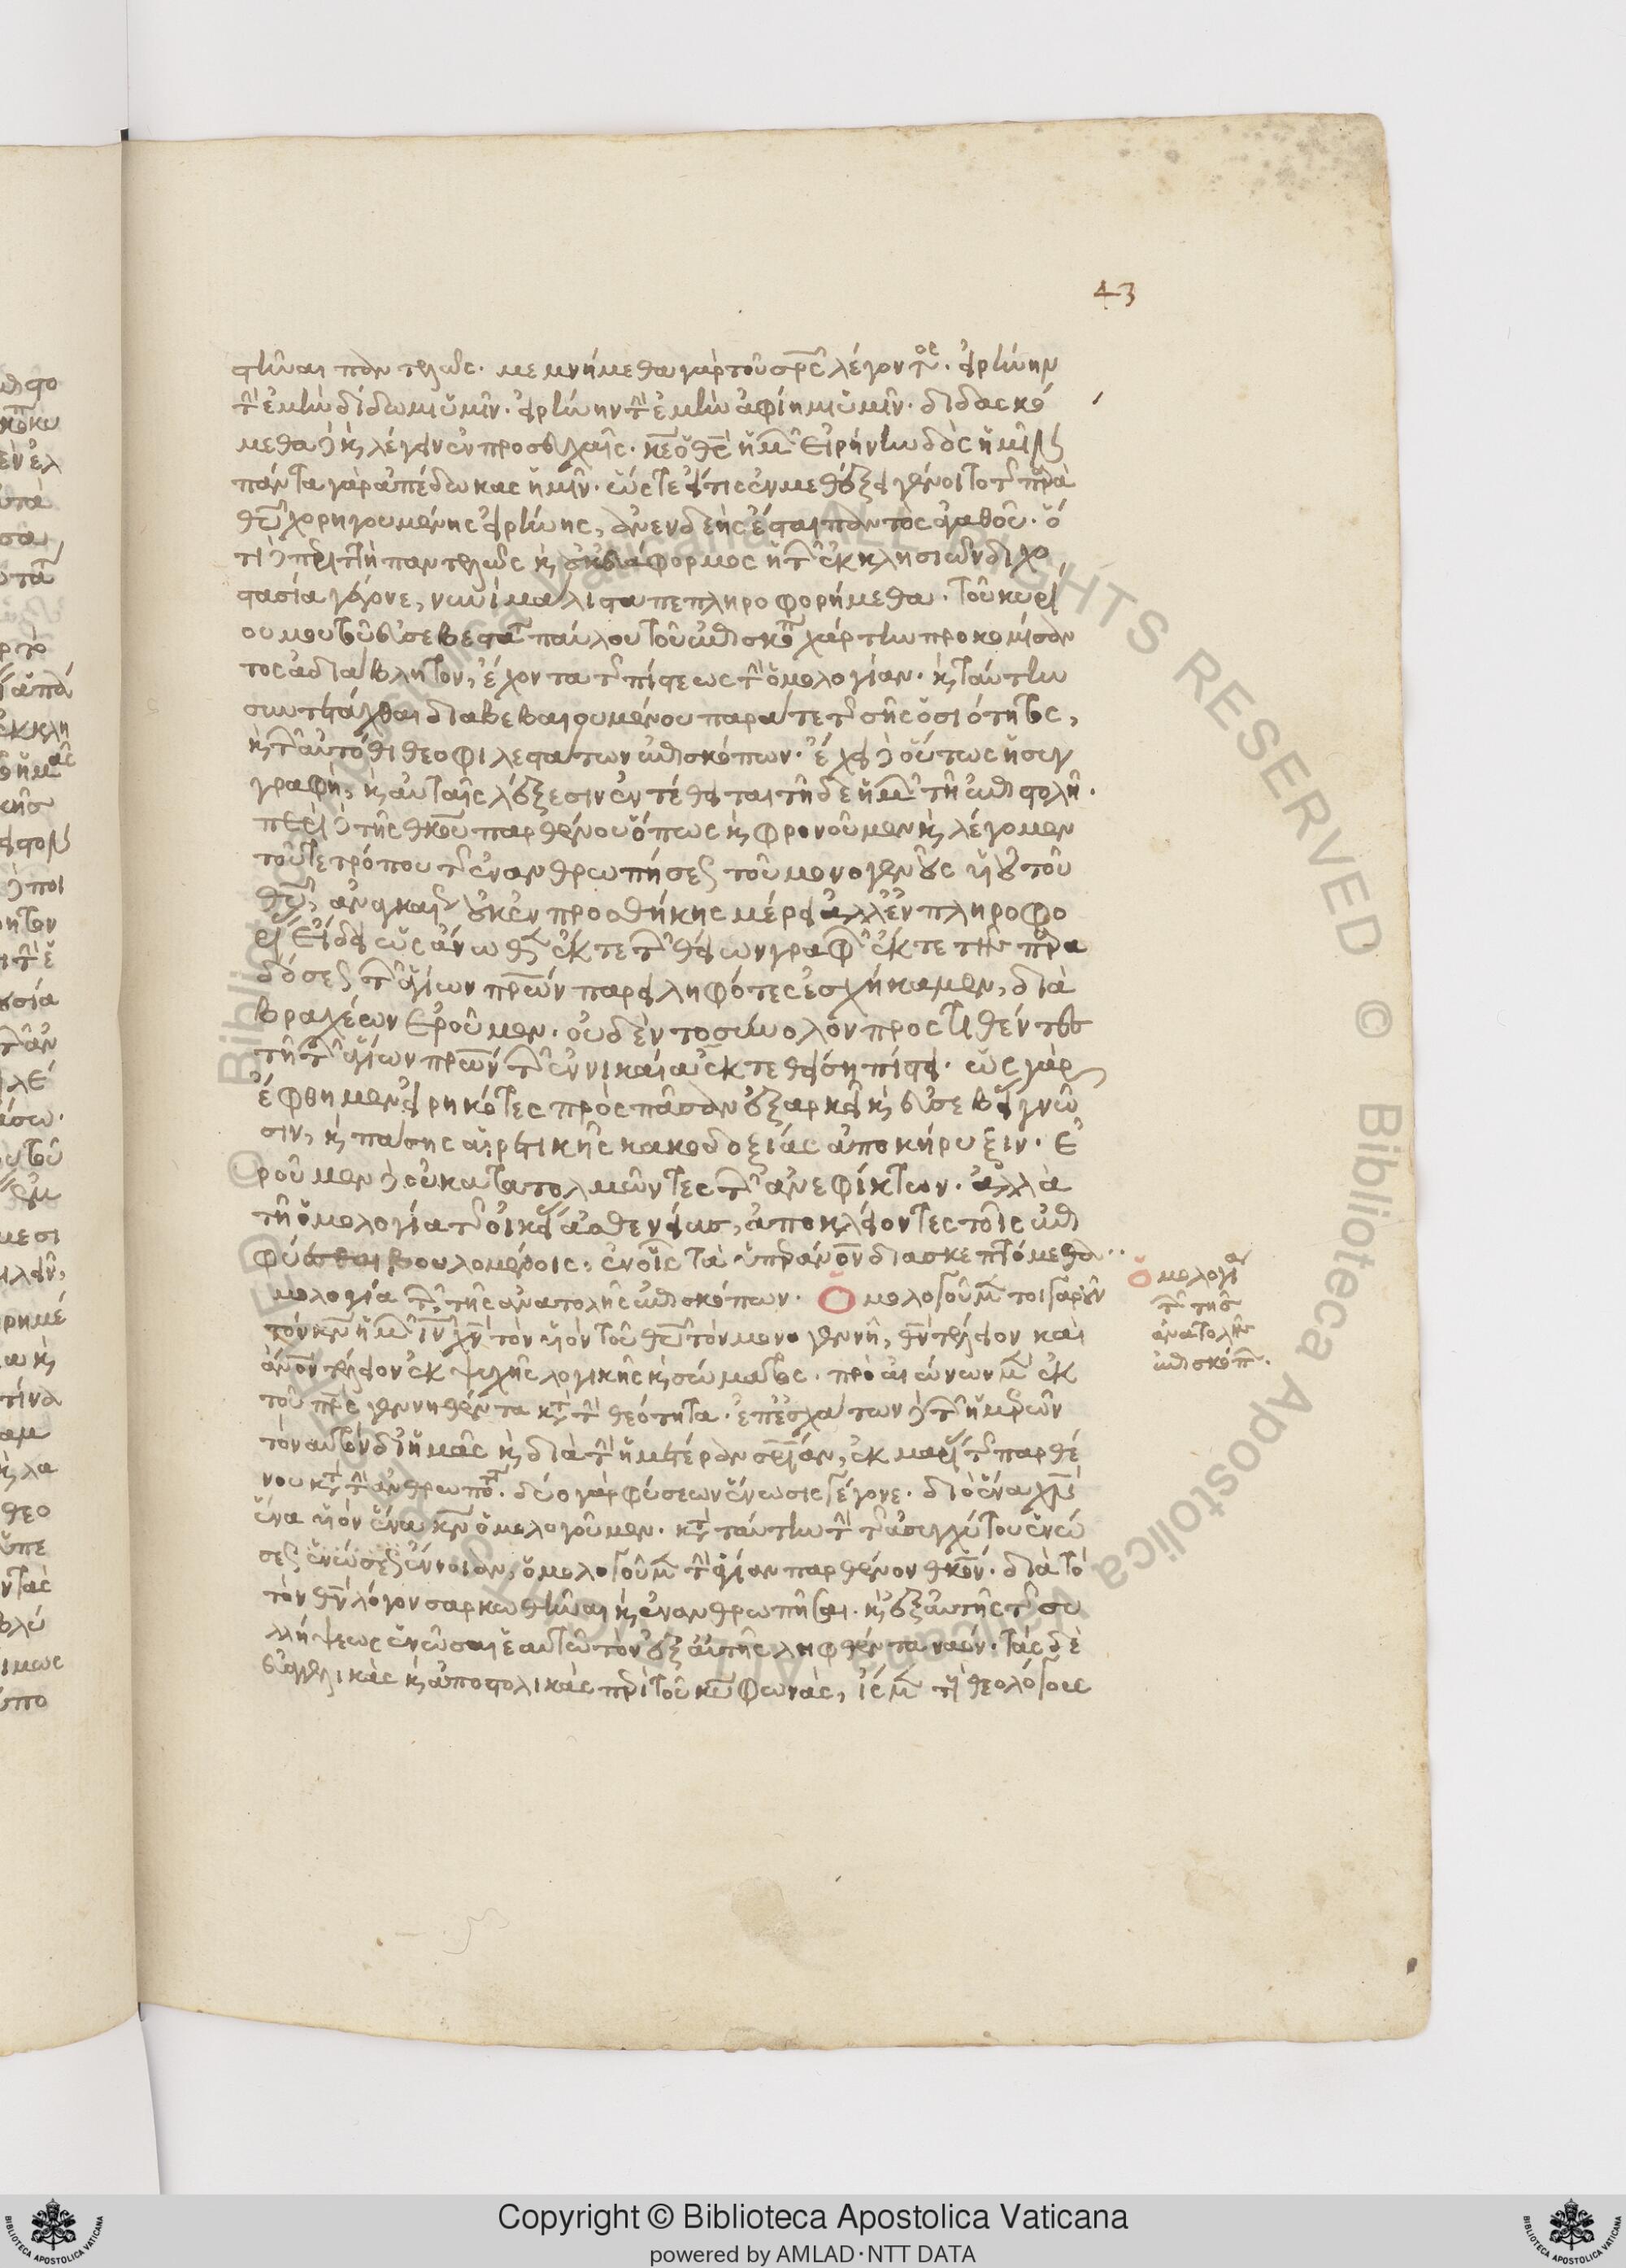 43
στῆναι παντελῶς· μεμνήμεθα γὰρ τοῦ σρ̅ς λέγοντος· εἰρήνην
τὴν ἐμὴν δίδωμι ὑμῖν· εἰρήνην τὴν ἐμὴν ἀφίημι ὑμῖν· διδασκό
μεθα δὲ καὶ λέγειν ἐν προσευχαῖς· κε̅ ὁ θς̅ ἡμῶν εἰρήνην δὸς ἡμῖν
πάντα γὰρ ἀπέδωκας ἡμῖν· ὥστε εἴ τις ἐν μεθέξει γένοιτο τῆς παρὰ
θυ̅ χορηγουμένης εἰρήνης, ἀνενδεὴς ἔσται παντὸς ἀγαθοῦ· ὅ
τι δὲ περιττὴ παντελῶς καὶ οὐκ εὐάφορμος ἡ τῶν ἐκκλησιῶν διχο
στασία γέγονε, νυνὶ μάλιστα πεπληροφορήμεθα· τοῦ κυρί
ου μου τοῦ εὐσεβεστάτου παύλου τοῦ ἐπισκόπου χάρτην προκομίσαν
τος ἀδιάβλητον, ἔχοντα τῆς πίστεως τὴν ὁμολογίαν· καὶ ταύτην
συντετάχθαι διαβεβαιουμένου παρά τε τῆς σῆς ὁσιότητος,
καὶ τῶν αὐτόθι θεοφιλεστάτων ἐπισκόπων· ἔχει δὲ οὕτως ἡ συγ
γραφή, καὶ αὐταῖς λέξεσιν ἐντέθειται τῇδε ἡμῶν τῇ ἐπιστολῇ·
περὶ δὲ τῆς θκου̅ παρθένου ὅπως καὶ φρονοῦμεν καὶ λέγομεν
τοῦ τε τρόπου τῆς ἐνανθρωπήσεως τοῦ μονογενοῦς υἱοῦ τοῦ
θυ̅, ἀναγκαίως οὐκ ἐν προσθήκης μέρει ἀλλ' ἐν πληροφο
ρίας εἴδει ὡς ἄνωθεν ἔκ τε τῶν θείων γραφῶν ἔκ τε τῆς παρα
δόσεως τῶν ἁγίων πρω̅ν παρειληφότες ἐσχήκαμεν, διὰ
βραχέων ἐροῦμεν· οὐδὲν τὸ σύνολον προστιθέντες
τῇ τῶν ἁγίων πρω̅ν τῶν ἐν νικαίᾳ ἐκτεθείσῃ πίστει· ὡς γὰρ
ἔφθημεν εἰρηκότες πρὸς πᾶσαν ἐξαρκεῖ καὶ εὐσεβείας γνῶ
σιν, καὶ πάσης αἱρετικῆς κακοδοξίας ἀποκήρυξιν· ἐ
ροῦμεν δὲ οὐ κατατολμῶντες τῶν ἀνεφίκτων· ἀλλὰ
τῇ ὁμολογίᾳ τῆς οἰκείας ἀσθενείας, ἀποκλείοντες τοῖς ἐπι
φύεσθαι βουλομένοις, ἐν οἷς τὰ ὑπὲρ ἄνον̅ διασκεπτόμεθα··
μολογία τῶν τῆς ἀνατολῆς ἐπισκόπων· Ὁμολογοῦμεν τοιγαροῦν
τὸν κν̅ ἡμῶν ιν̅ χν̅ τὸν υἱὸν τοῦ θυ̅ τὸν μονογεννῆ, θν̅ τέλειον καὶ
ἄνον̅ τέλειον ἐκ ψυχῆς λογικῆς καὶ σώματος· πρὸ αἰώνων μὲν ἐκ
τοῦ πρς̅ γεννηθέντα κατὰ τὴν θεότητα· ἐπ' ἐσχάτων δὲ τῶν ἡμερῶν
τὸν αὐτὸν δι' ἡμᾶς καὶ διὰ τὴν ἡμετέραν σρίαν̅, ἐκ μαρίας τῆς παρθέ
νου κατὰ τὴν ἀνθρωπότητα· δύο γὰρ φύσεων ἕνωσις γέγονε· διὸ ἕνα χν̅
ἕνα υἱὸν ἕνα κν̅ ὁμολογοῦμεν· κατὰ ταύτην τὴν τῆς ἀσυγχύτου ἑνώ
σεως ἑνώσεως ἔννοιαν, ὁμολογοῦμεν τὴν ἁγίαν παρθένον θκον̅· διὰ τὸ
τὸν θν̅ λόγον σαρκωθῆναι καὶ ἐνανθρωπῆσαι· καὶ ἐξ αὐτῆς τῆς συ
λλήψεως ἑνῶσαι ἑαυτῷ τὸν ἐξ αὐτῆς ληφθέντα ναόν· τὰς δὲ
εὐαγγελικὰς καὶ ἀποστολικὰς περὶ τοῦ κυ̅ φωνὰς, ἴσμεν τοὺς θεολόγους
Ὁμολογία
τῶν τῆς
ἀνατολῆς
ἐπισκόπ·